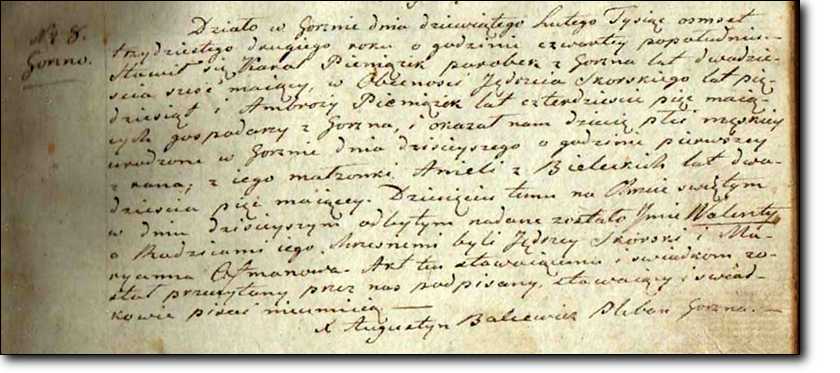 Nr 8.
Gorzno.
Działo w Gorznie dnia dziewiątego lutego Tysiąc osmset
trzydziestego drugiego roku o godzinie czwartey popołudniu.
Stawił się Karol Pieniązek parobek z Gorzna lat dwadzie-
scia szesc maiący, w Obecnosci Jędrzeia Skorskiego lat pię-
dziesiąt i Ambrozy Pieniązek lat czterdziescie pięc maią-
cych gospodarzy z Gorzna, i okazał nam dziecię płci męskiey
urodzone w Gorznie dnia dzisieyszego o godzinie pierwszey
z rana, z iego małzonki Anieli z Bieleckich lat dwa-
dziescia pięc maiącey. Dziecięciu temu na Chrzcie swiętym
w dniu dzisieyszym odbytym nadane zostało Jmie Walenty
a Rodzicami iego chrzesnemi byli Jędrzey Skórski i Ma-
ryanna. Akt ten stawaiącemu i swiadkom zo-
stał przeczytany przez nas podpisany, stawaiący i swiad-
kowie pisac nieumieią
X Augustyn Baliewicz Pleban Gorzna.